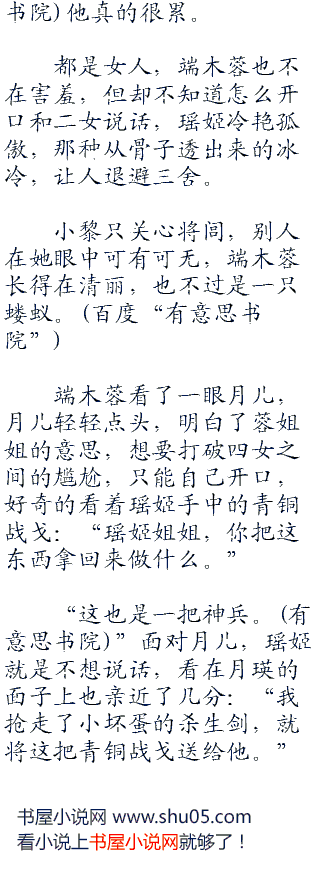 书院)他真的很累。
都是女人，端木蓉也不
在害羞，但却不知道怎么开
口和二女说话，瑶姬冷艳孤
傲，那种从骨子透出来的冰
冷，让人退避三舍。
小黎只关心将闾，别人
在她眼中可有可无，端木蓉
长得在清丽，也不过是一只
蝼蚁。(百度“有意思书
院”)
端木蓉看了一眼月儿，
月儿轻轻点头，明白了蓉姐
姐的意思，想要打破四女之
间的尴尬，只能自己开口，
好奇的看着瑶姬手中的青铜
战戈：“瑶姬姐姐，你把这
东西拿回来做什么。”
“这也是一把神兵。(有
意思书院)”面对月儿，瑶姬
就是不想说话，看在月瑛的
面子上也亲近了几分：“我
抢走了小坏蛋的杀生剑，就
将这把青铜战戈送给他。”
书屋小说网 www.shu05.com
看小说上书屋小说网就够了！